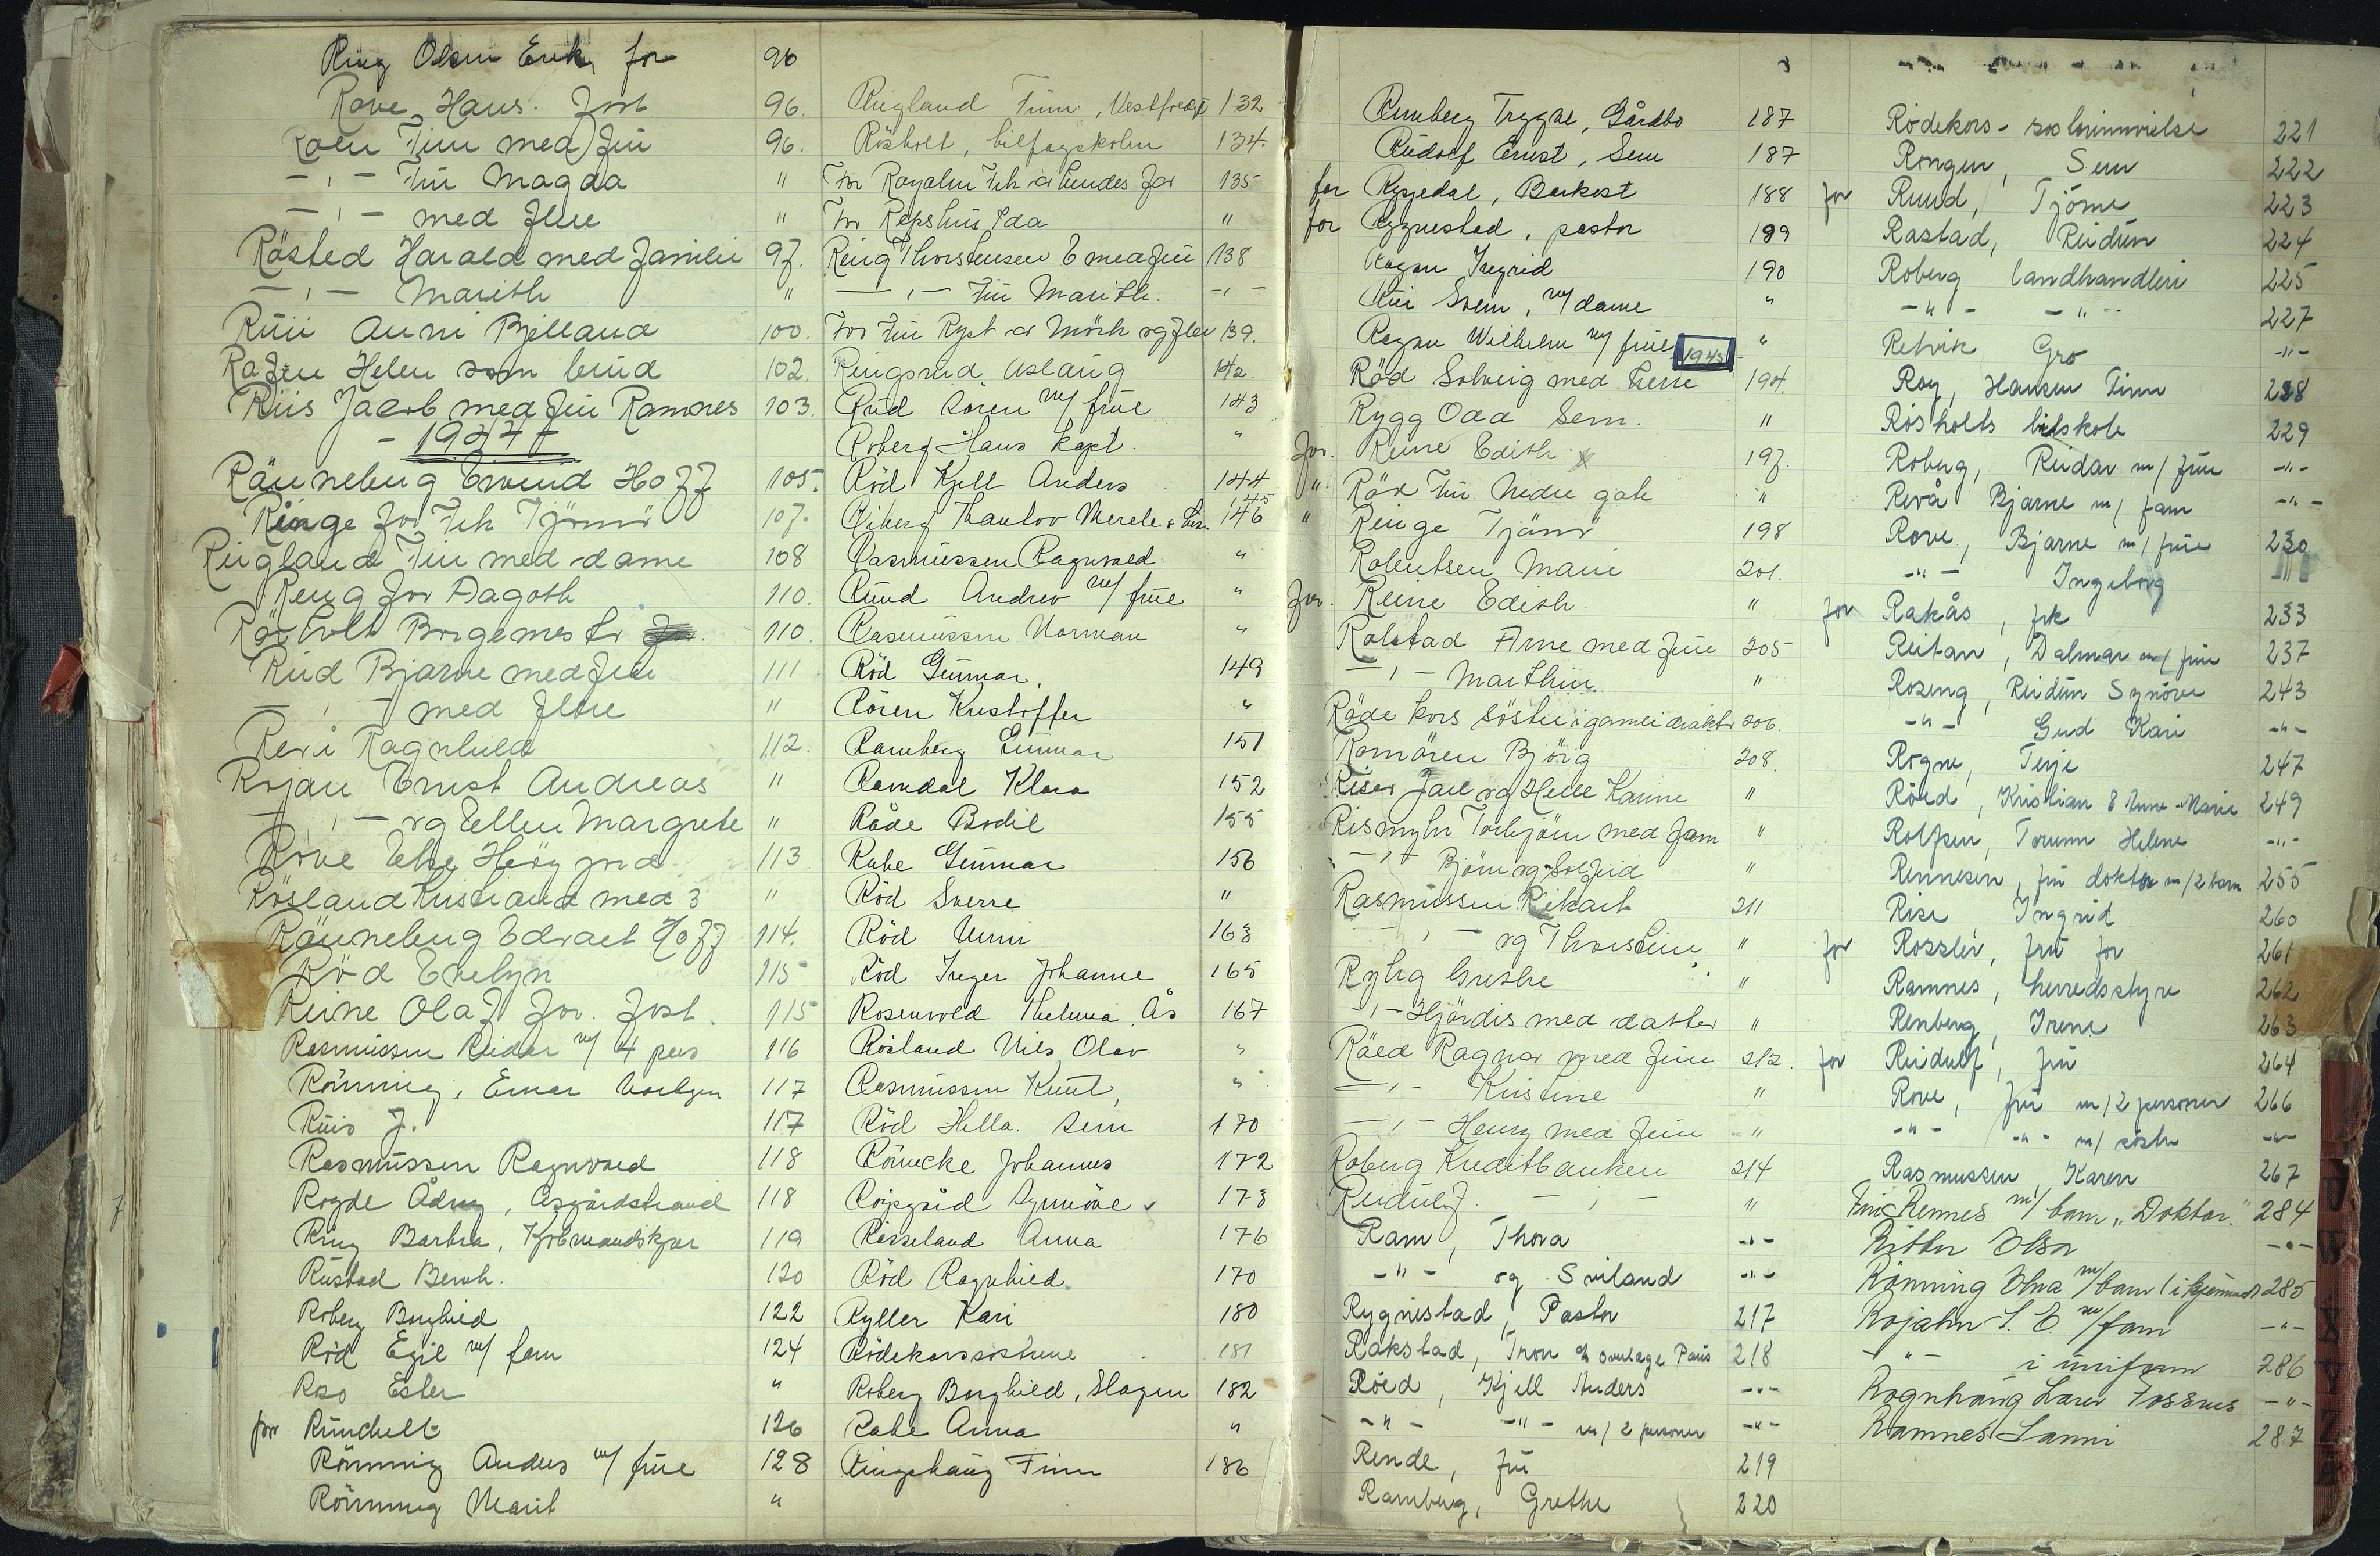 Ring Olsen Erik, for 96
Rove, Hans. Fost 96.
Roen Finn med Fru 96.
— „ — Fru Magda "
— „ — med Flere "
Råsted Harald med Familie 97.
— „ — Marith "
Anni Bjelland 100.
Helen som brud 102.
Riis Jacob med Fru Ramnes 103.
- 1944 -
Rånneberg Eivind Hoff 105.
Ringe for Frk Tjömö 107.
Ringland Finn med dame 108
Reng for Dagoth 110.
Borgemester 110.
Rud Bjarne med Frue 111
— „ — med Flere "
Ragnhild 112.
Rojan Ernst Andreas "
— „ — og Ellen Margrete "
Rove Else Höyjord 113
Rösland Kristiane med 3 "
Rånneberg Edvart Hoff 114.
Röd Evelyn 115
Reine Olaf For. Fost. 115
Rasmussen Reidar m/ 4 pers 116
Rönning, Einar 117
J. 117
Rasmussen Ragnvald 118
Rogde, Åsgårdstrand 118
Ring Barbra, Kjöbmandskjær 119
Rustad Bernh. 120
Roberg Borghild 122
Röd Egil m/ fam 124
Ester "
for Rundhelt 126
Rönning Anders m/ frue 128
Rönning Marit "
Ringland Finn, 132
Rösholt, bilfagskolen 134.
For Frk og hendes Far 135
For Ida "
Ring Thorstensen E med Fru 138
— „ — Fru Marith. - „ -
For Fru Ryst og Mörk og Flere 139.
Ringsrud Aslaug 142.
Rud Sören m/ frue 143
Roberg Hans kapt. "
Röd Kjell Anders 144
145
146
Rasmussen Ragnvald "
Ruud Andrew m/ frue "
Rasmussen Norman "
Röd Gunnar, 149
Rören Kristoffer "
Ramberg Gunnar 151
Ramdal Klara 152
Råde Bodil 155
Rabe Gunnar 156
Röd Sverre "
Röd Unni 163
Röd Inger Johanne 165
Rosenvold Thelma Ås 167
Rösland Nils Olav "
Rasmussen Knut, "
Röd Hella. Sem 170
Rönneke Johannes 172
Synnöve 173
Rösseland Anna 176
Röd Ragnhild. 170
Ryller Kari 180
Rödekorssöstrene 181
Roberg Borghild, Slagen 182
Rabe Anna "
Ringshaug Finn 186
Ramberg Trygve, Gårdbo 187
Rudolf Ernst, Sem 187
for Barkost 188
for Rygnestad, pastor 189
Ragna Ingrid 190
Svein, m/ dame "
Wilhelm m/ frue "
1945
Röd Solveig med Herre 194.
Rygg Oda Sem. "
For. Reine Edith 197.
" Röd Fru Nedre gate "
" Ringe Tjömö 198
Robertsen Marie 201.
For. Reine Edith "
Rolstad Arne med Frue 205
— „ — Marthin "
Röde kors söstre i gamle drakter 206.
Romören Bjørg 208.
Jarl og Helle Karine "
Rismyhr Torbjörn med Fam "
— „ — Björn og Solfrid "
Rasmussen Rikart 211
— „ — og Thorstein "
Ryhg Grethe "
— „ — Hjördis med datter "
Röed Ragnar med Frue 212.
— „ — Kristine "
— „ — Henry med Frue "
Roberg Kreditbanken 214
Reidulf — „ — "
Ram, Thora -„-
- " - og Smiland -„-
Rygnestad, Pastor 217
Rakstad, Tron 218
Röed, Kjell Anders -„-
- " - - " - m/ 2 personer -„-
Rende, fru 219
Ramberg, Grethe 220
Rödekors- 221
Rongen, Sem 222
for Ruud, Tjöme 223
Rastad, Reidun 224
Roberg landhandleri 225
- " - - " - 227
Retvik Gro -„-
Roy, Hansen Finn 228
Rösholts bilskole 229
Roberg, Reidar m/ frue -„-
Revå Bjarne m/ fam -„-
Rove, Bjarne m/ frue 230
- " - Ingeborg
for Rakås, frk 233
Reitan, Dalmar m/ frue 237
Roseng, Reidun Synöve 243
- " - Gud Kari -„-
Rogne, Terje 247
Röed, Kristian & Anne-Marie 249
Rolfsen, Torunn Helene -„-
Rennesen, fru doktor m/ 2 barn 255
Rise Ingrid 260
for Rossler, fru for 261
Ramnes, herredsstyre 262
Renberg, Irene 263
for Reidulf, fru 264
Rove, fru m/ 2 personer 266
- " - - " - m/ söster -„-
Rasmussen, Karen 267
Fru Rennes m/ barn „Doktor" 284
Ritter Elsa -„-
Rönning Elna m/ barn 285
Rojahn m/ fam -„-
- " - i uniform 286
Rognhaug -„-
Ramnes 287